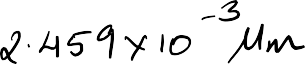 2.459 × 10⁻³ μm